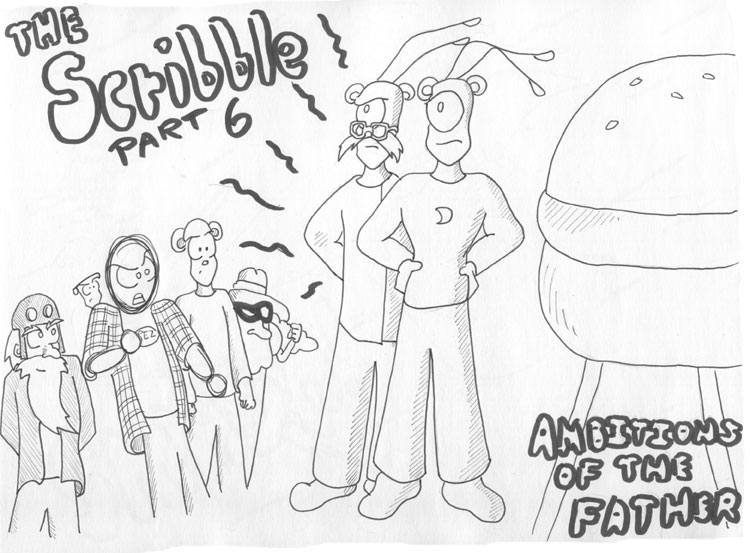 THE
Scribble
PART 6
AMBITIONS
OF THE
FATHER